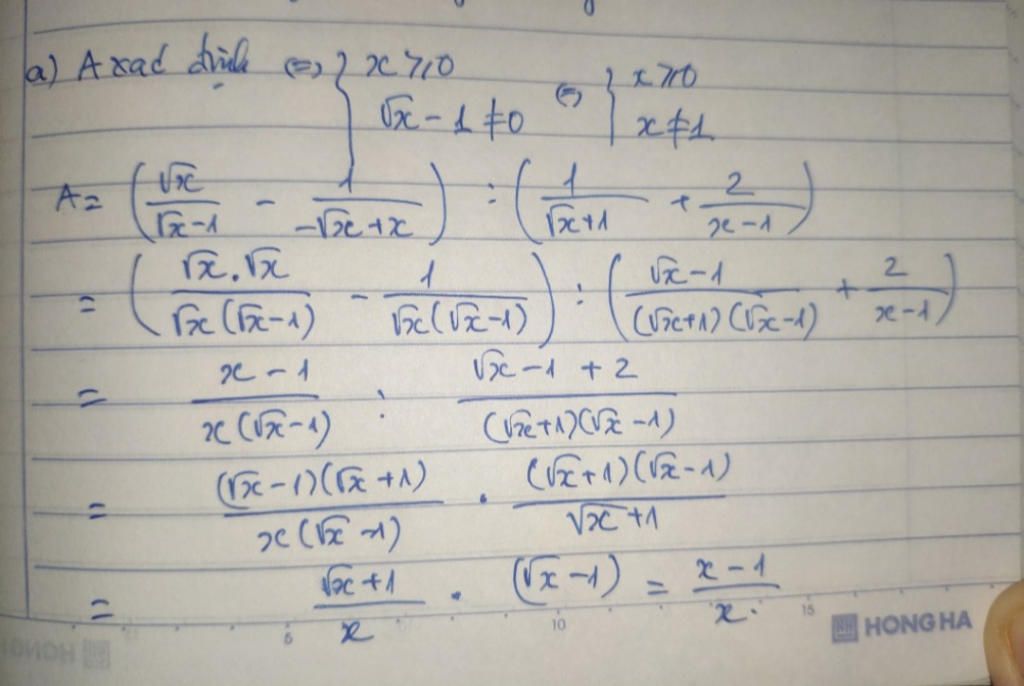 a) A xác định ⇔ { x ≥ 0 ⇔ { x ≥ 0
√x - 1 ≠ 0 x ≠ 1
A = (√x/(√x-1) - 1/(-√x+x)) : (1/(√x+1) + 2/(x-1))
= (√x.√x/(√x(√x-1)) - 1/(√x(√x-1))) : ((√x-1)/((√x+1)(√x-1)) + 2/(x-1))
= (x-1)/(x(√x-1)) : (√x-1+2)/((√x+1)(√x-1))
= (√x-1)(√x+1)/(x(√x-1)) . (√x+1)(√x-1)/(√x+1)
= (√x+1)/x . (√x-1) = (x-1)/x.
5 10 15 HONG HA